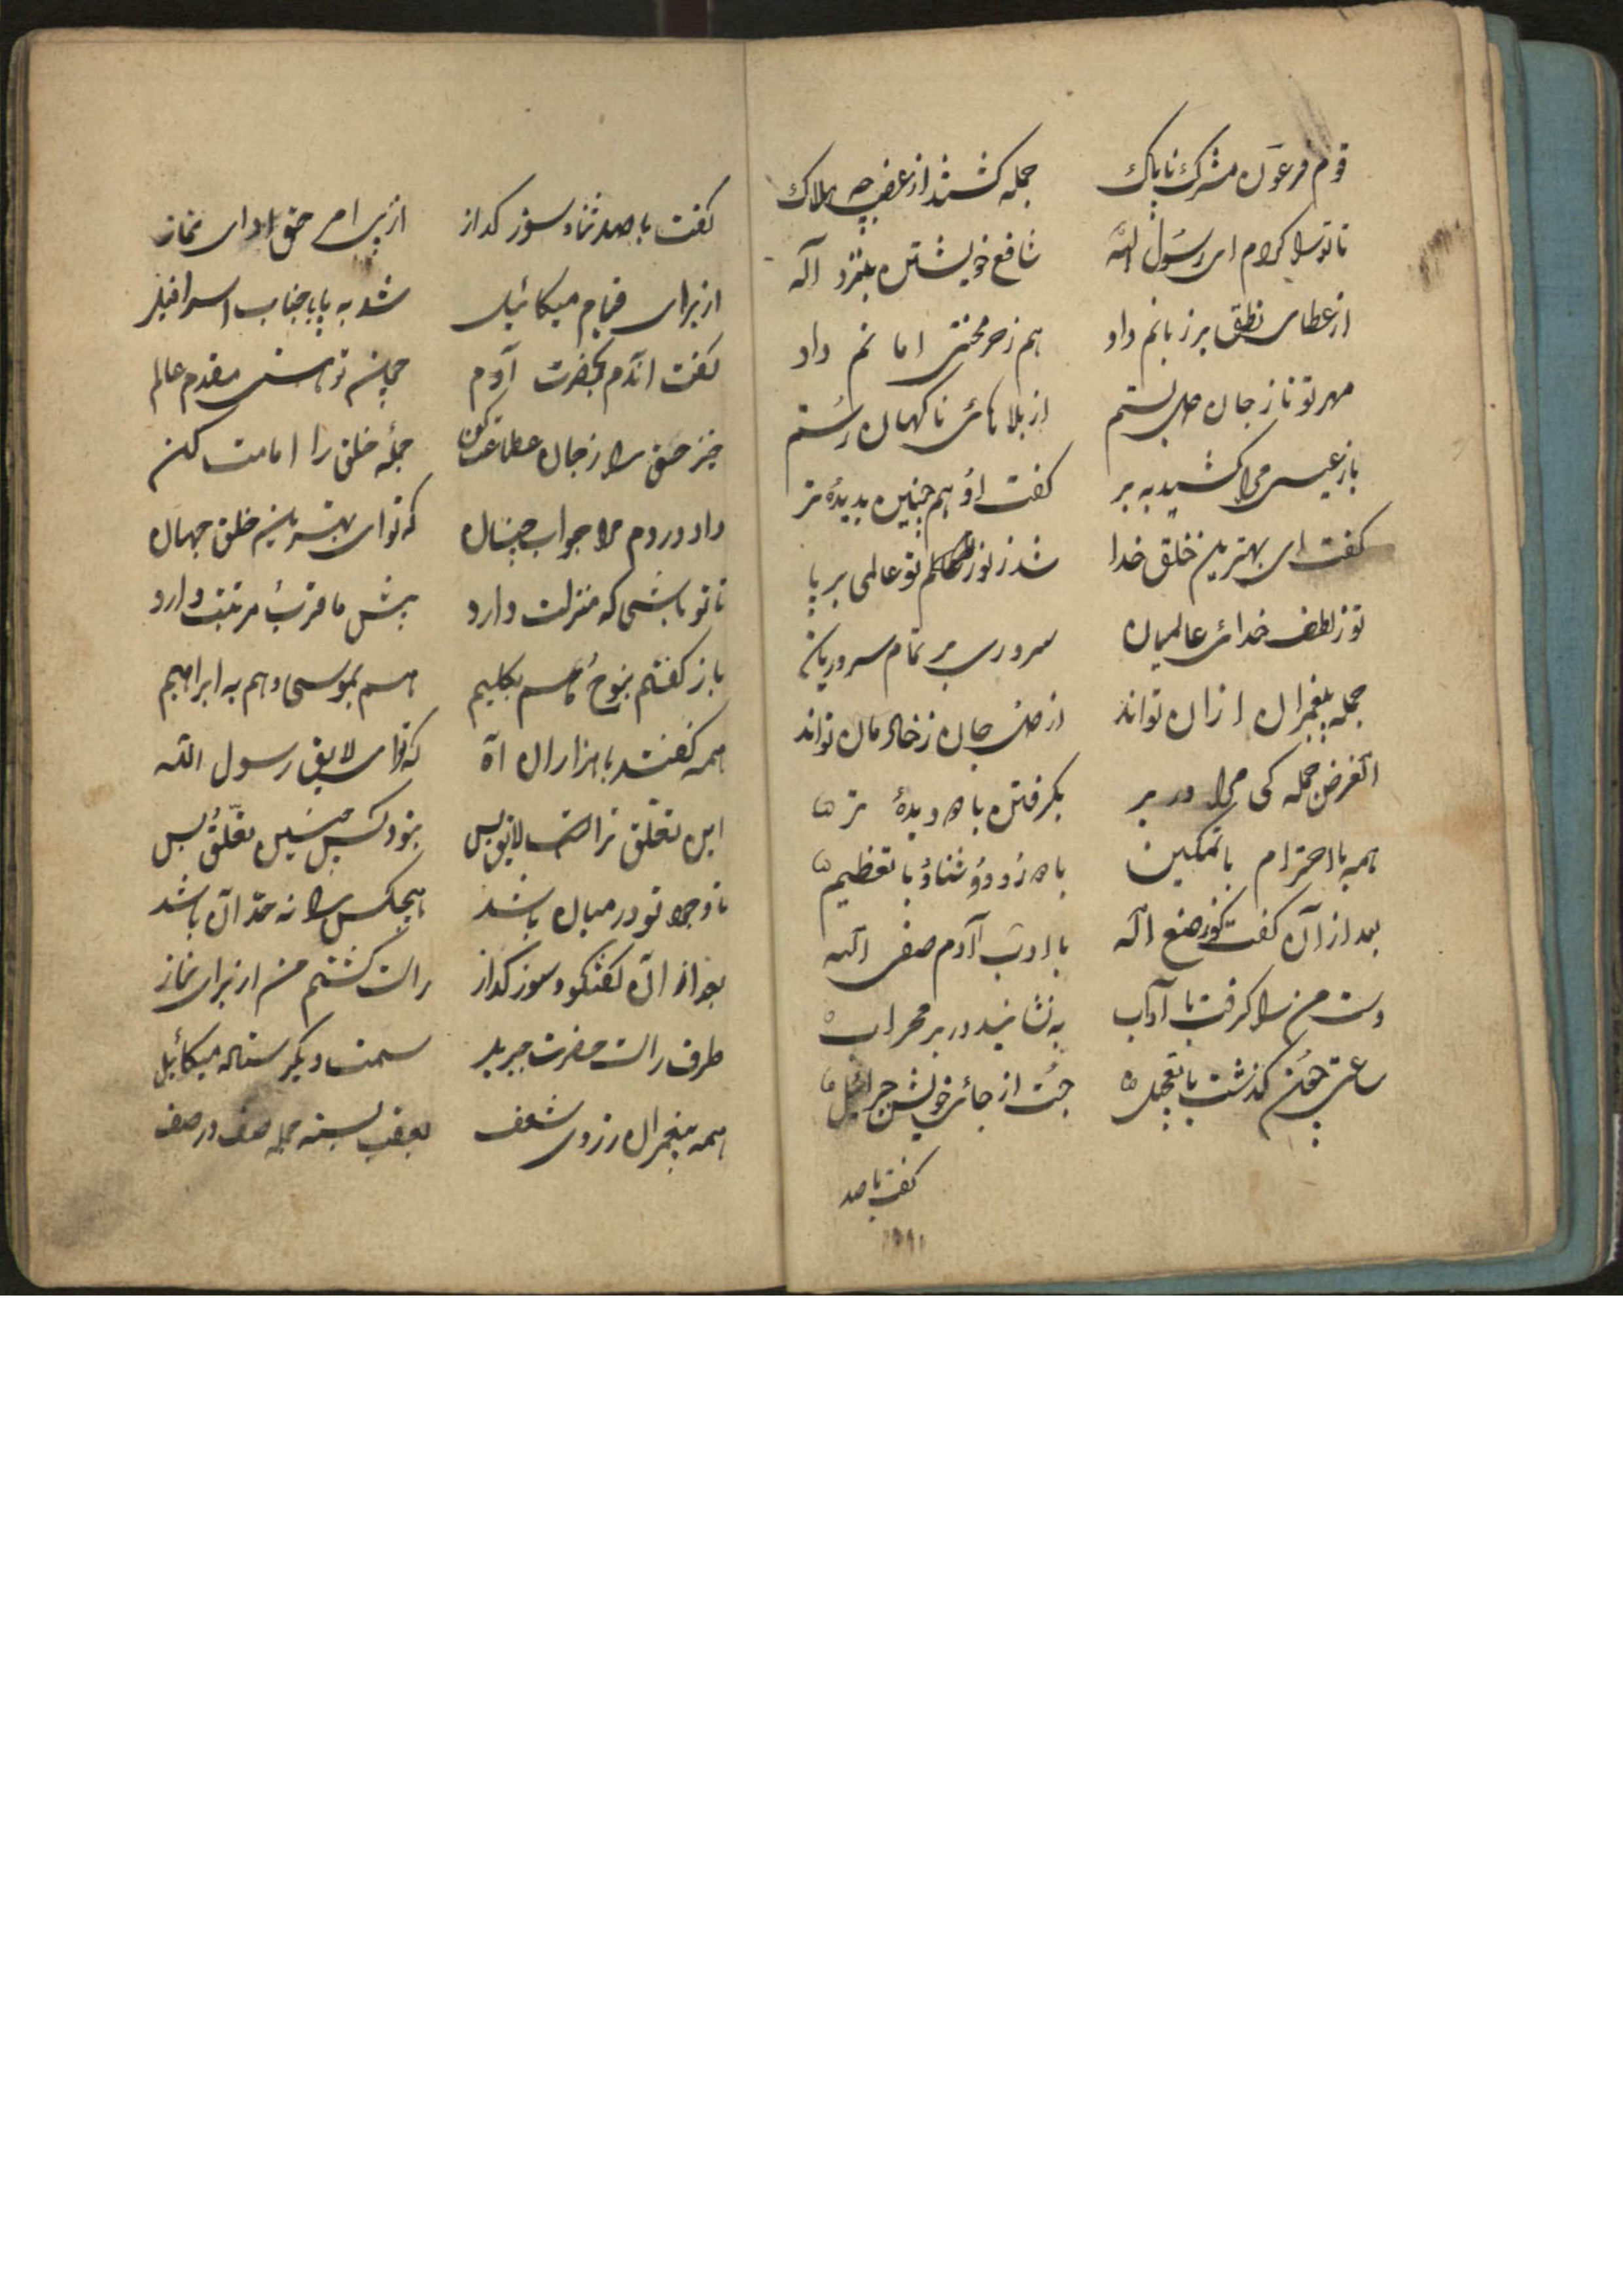 قوم فرعون مشرک ناپاک جمله کشتند از غضب هلاک
تا ترا کردم ای رسول الله شافع خویشتن بنزد اله
از عطای نطق بر زبانم داد هم ز هر محنتی امانم داد
مهر تو تا ز جان بستم از بلاهای ناکهان رستم
باز عیسی مرا کشید به بر کفت او هم چنین بدیدهٔ تر
کفت ای بهترین خلق خدا شد ز نور تو عالمی بر پا
تو ز لطف خدای عالمیان سروری بر تمام سروریان
جمله پیغمبران از آن تواند از جان تواند
الغرض جمله کی مرا در بر بکرفتن با دیدهٔ تر
همه با احترام با تمکین با درود و ثنا و با تعظیم
بعد از آن کفت صنع اله با ادب آدم صفی الله
دست من را کرفت با آداب به نشانید در بر محراب
ساعتی چون کذشت با تعجیل جست از جای خویش جبرائیل
کفت باصد
کفت با صد ثنا و سوز کداز از پی امر حق ادای نماز
از برای قیام میکائیل شد به پا با جناب اسرافیل
کفت آندم بحضرت آدم چون تو هستی مقدم عالم
خیز حق را ز جان اطاعت کن جملهٔ خلق را امامت کن
داد در دم مرا جواب چنان که تو ای بهترین خلق جهان
تا تو باشی که منزلت دارد پیش ما قرب مرتبت دارد
باز کفتم بنوح هم بکلیم هم بموسی و هم به ابراهیم
همه کفتند با هزاران آه که توای لایق رسول الله
این تعلق ترا است لایق بس نبود کس چنین تعلق بس
تا وجود تو در میان باشد هیچکس را نه حد آن باشد
بعد از آن کفتکو و سوز کداز راست کشتم من از برای نماز
طرف راست حضرت جبریل سمت دیکر ستاده میکائیل
همه پیغمبران ز روی شعف بعقب بسته جمله صف در صف